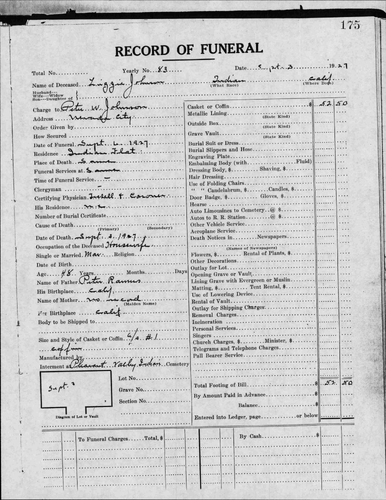 175
RECORD OF FUNERAL
Total No. Yearly No. 83 Date Sept. 3 1927
Name of Deceased Lizzie Johnson Indian Calif.
Husband— (What Race) (Where Born)
Wife—Widow
Son—Daughter of
Charge to Pete W. Johnson
Address City
Order Given by
How Secured
Date of Funeral Sept. 1927
Residence Indian Flat
Place of Death Same
Funeral Services at Same
Time of Funeral Service
Clergyman
Certifying Physician Coroner
His Residence
Number of Burial Certificate
Cause of Death
(Primary) (Secondary)
Date of Death Sept. 1927
Occupation of the Deceased Housewife
Single or Married Mar. Religion
Date of Birth
Age 48 Years Months Days
Name of Father Peter
His Birthplace Calif
Name of Mother no record
(Maiden Name)
Her Birthplace Calif
Body to be Shipped to
Size and Style of Casket or Coffin #1
coffin
Manufactured by
Interment at Pleasant Valley Indian Cemetery
Lot No.
Grave No.
Section No.
Sept. 3
Diagram of Lot or Vault
Casket or Coffin $ 52 50
Metallic Lining
(State Kind)
Outside Box
(State Kind)
Grave Vault
(State Kind)
Burial Suit or Dress
Burial Slippers and Hose
Engraving Plate
Embalming Body (with Fluid)
Dressing Body, $ Shaving, $
Hair Dressing
Use of Folding Chairs
" " Candelabrum, $ Candles, $
Door Badge, $ Gloves, $
Hearse
Auto Limousines to Cemetery @ $
Autos to R. R. Station @ $
Other Vehicle Service
Aeroplane Service
Death Notices in Newspapers
(Names of Newspapers)
Flowers, $ Rental of Plants, $
Other Decorations
Outlay for Lot
Opening Grave or Vault
Lining Grave with Evergreen or Muslin
Matting, $ Tent Rental, $
Use of Lowering Device
Rental of Vault
Outlay for Shipping Charges
Removal Charges
Incineration
Personal Services
Singers
Church Charges, $ Minister, $
Telegrams and Telephone Charges
Pall Bearer Service
Total Footing of Bill $ 52 50
By Amount Paid in Advance $
Balance
Entered into Ledger, page or below
To Funeral Charges Total, $
By Cash $